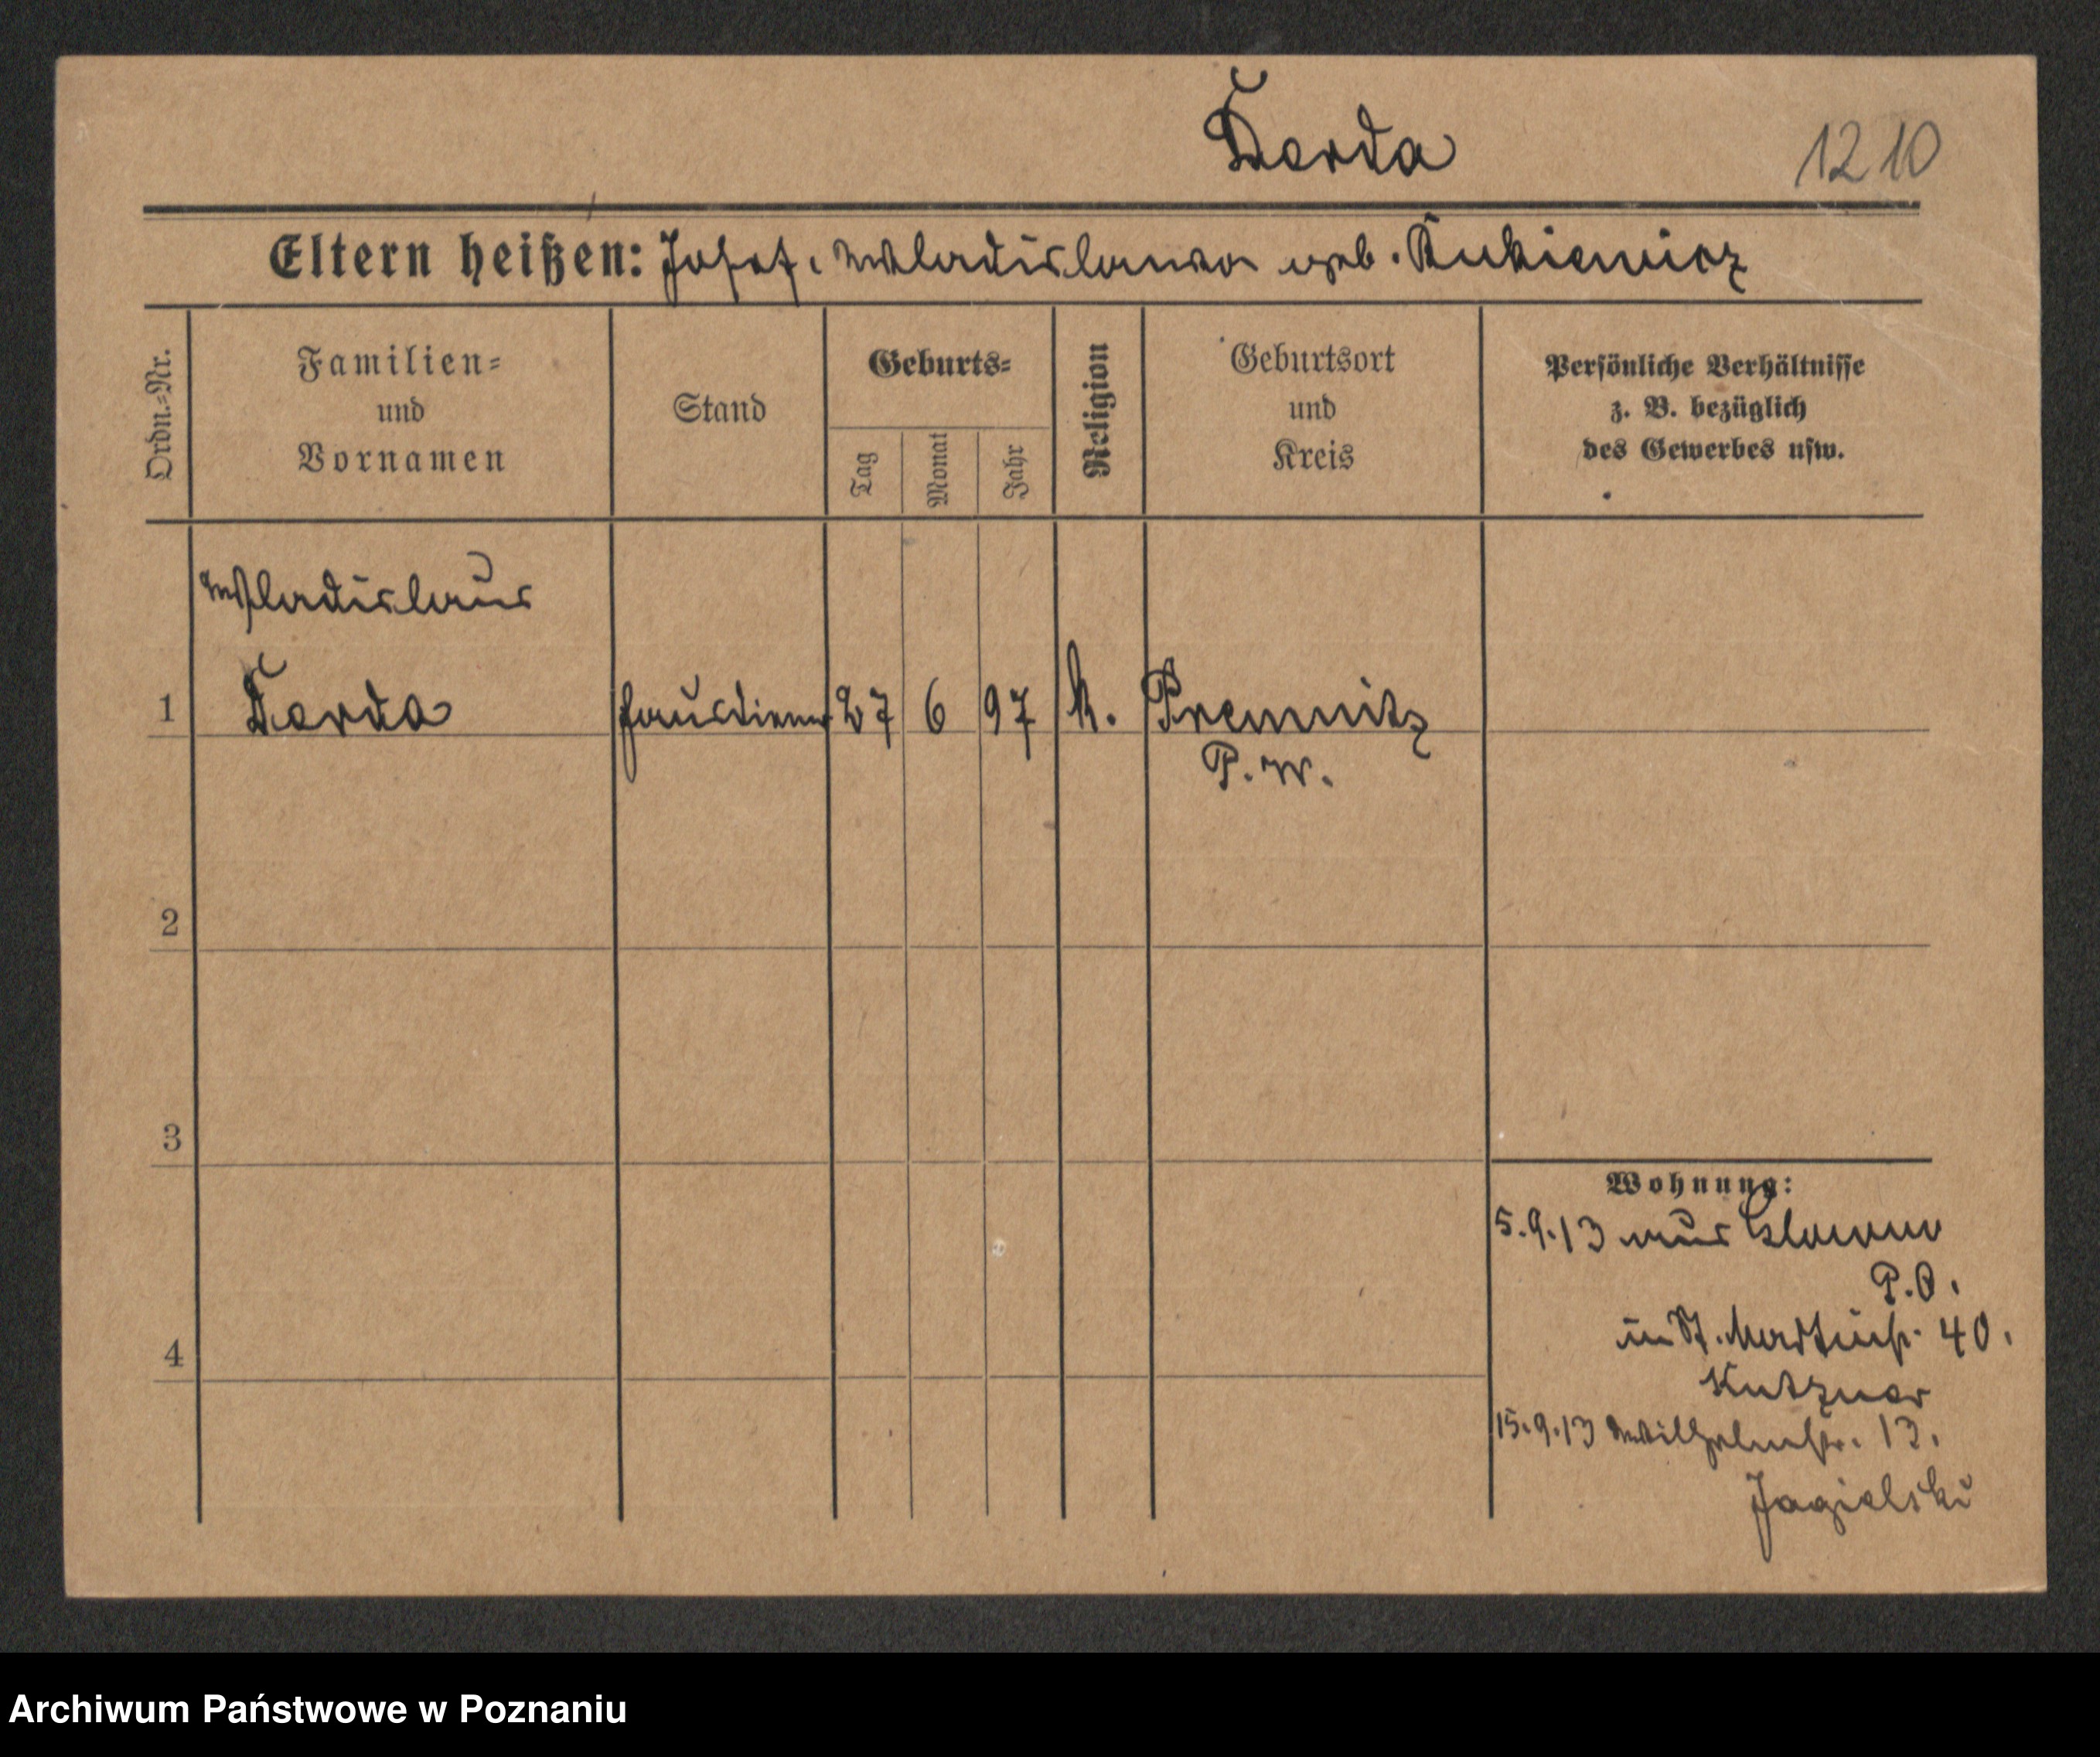 Derda
1210
Eltern heißen: Josef, Wladislawa geb. Kukiewicz
Ordn.-Nr.
Familien-
und
Vornamen
Stand
Geburts-
Tag
Monat
Jahr
Religion
Geburtsort
und
Kreis
Persönliche Verhältnisse
z. B. bezüglich
des Gewerbes usw.
Wladislaus
1 Derda Hausdiener 27 6 97 k. Premnitz
P. W.
2
3
4
Wohnung:
5.9.13 aus
P.O.
in St. Martinstr. 40.
Kutzner
15.9.13 Wilhelmstr. 13.
Jagielski
Archiwum Państwowe w Poznaniu